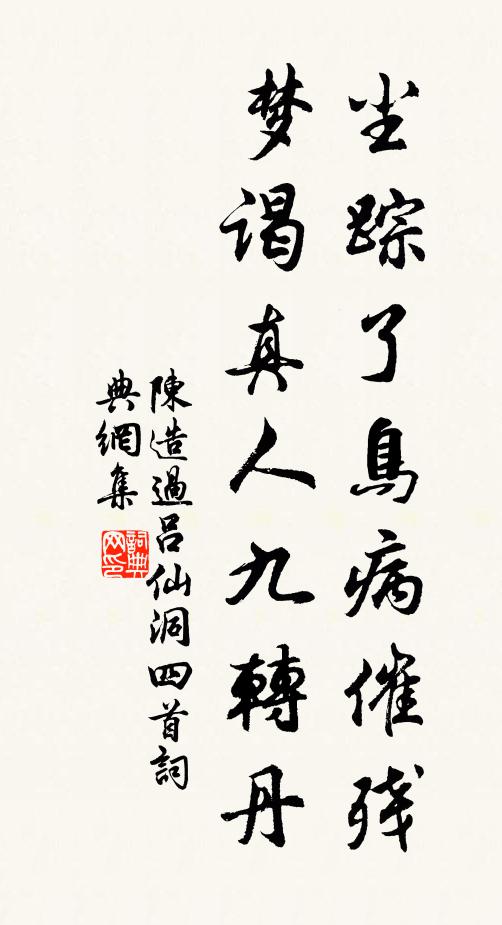 尘踪了鳥病催残
梦谒真人九轉丹
陳造過呂仙洞四首詞
典網集
詞典
网印